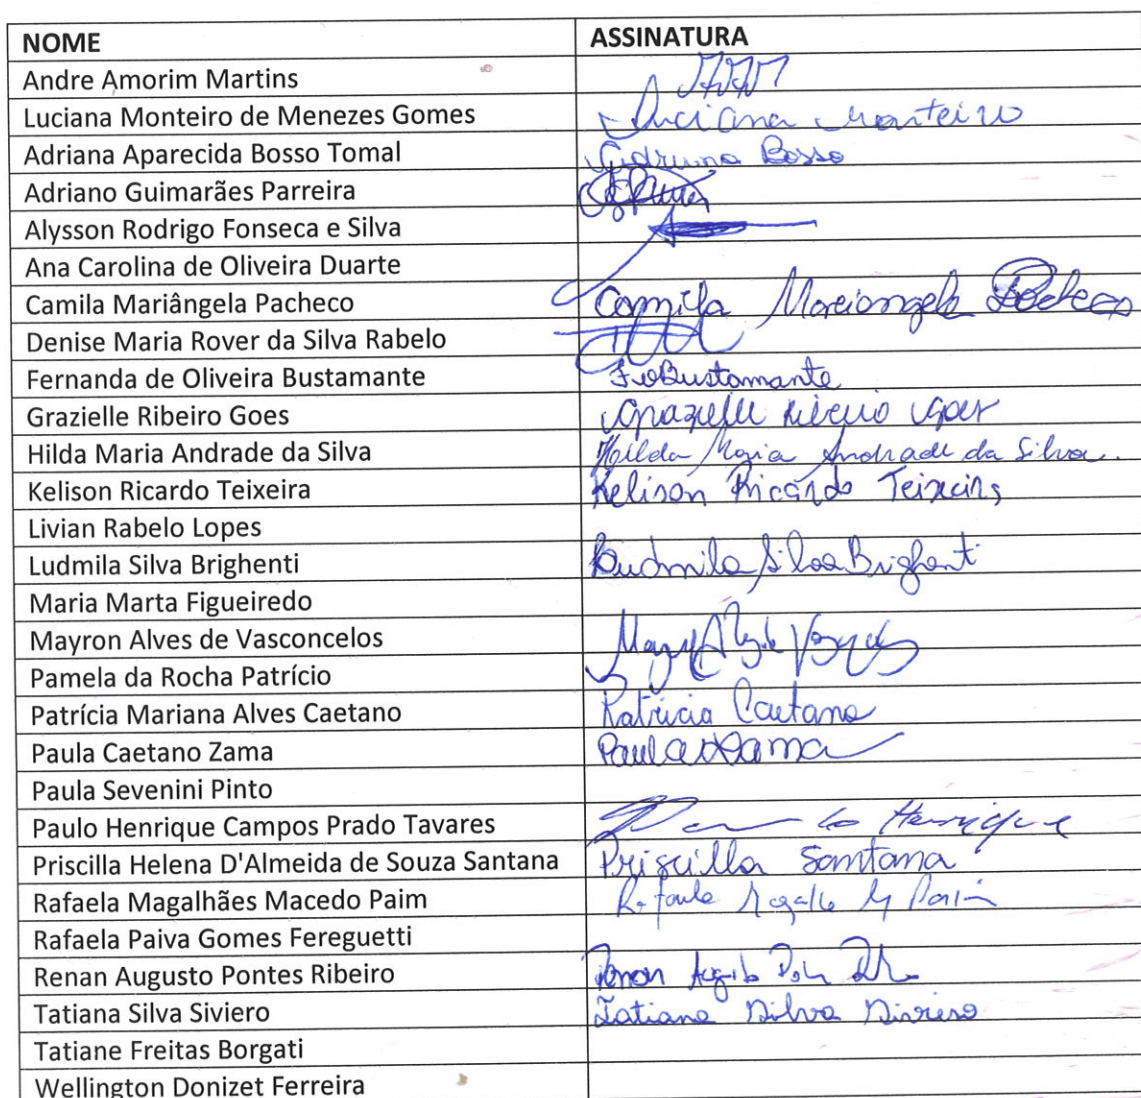 NOME ASSINATURA
Andre Amorim Martins
Luciana Monteiro de Menezes Gomes Luciana Monteiro
Adriana Aparecida Bosso Tomal Adriana Bosso
Adriano Guimarães Parreira
Alysson Rodrigo Fonseca e Silva
Ana Carolina de Oliveira Duarte
Camila Mariângela Pacheco Camila Mariangela Pacheco
Denise Maria Rover da Silva Rabelo
Fernanda de Oliveira Bustamante FOBustamante
Grazielle Ribeiro Goes Grazielle Ribeiro Goes
Hilda Maria Andrade da Silva Hilda Maria Andrade da Silva.
Kelison Ricardo Teixeira Kelison Ricardo Teixeira
Livian Rabelo Lopes
Ludmila Silva Brighenti Ludmila Silva Brighenti
Maria Marta Figueiredo
Mayron Alves de Vasconcelos
Pamela da Rocha Patrício
Patrícia Mariana Alves Caetano Patrícia Caetano
Paula Caetano Zama Paula Zama
Paula Sevenini Pinto
Paulo Henrique Campos Prado Tavares Henrique
Priscilla Helena D'Almeida de Souza Santana Priscilla Santana
Rafaela Magalhães Macedo Paim
Rafaela Paiva Gomes Fereguetti
Renan Augusto Pontes Ribeiro Renan
Tatiana Silva Siviero Tatiana Silva Siviero
Tatiane Freitas Borgati
Wellington Donizet Ferreira